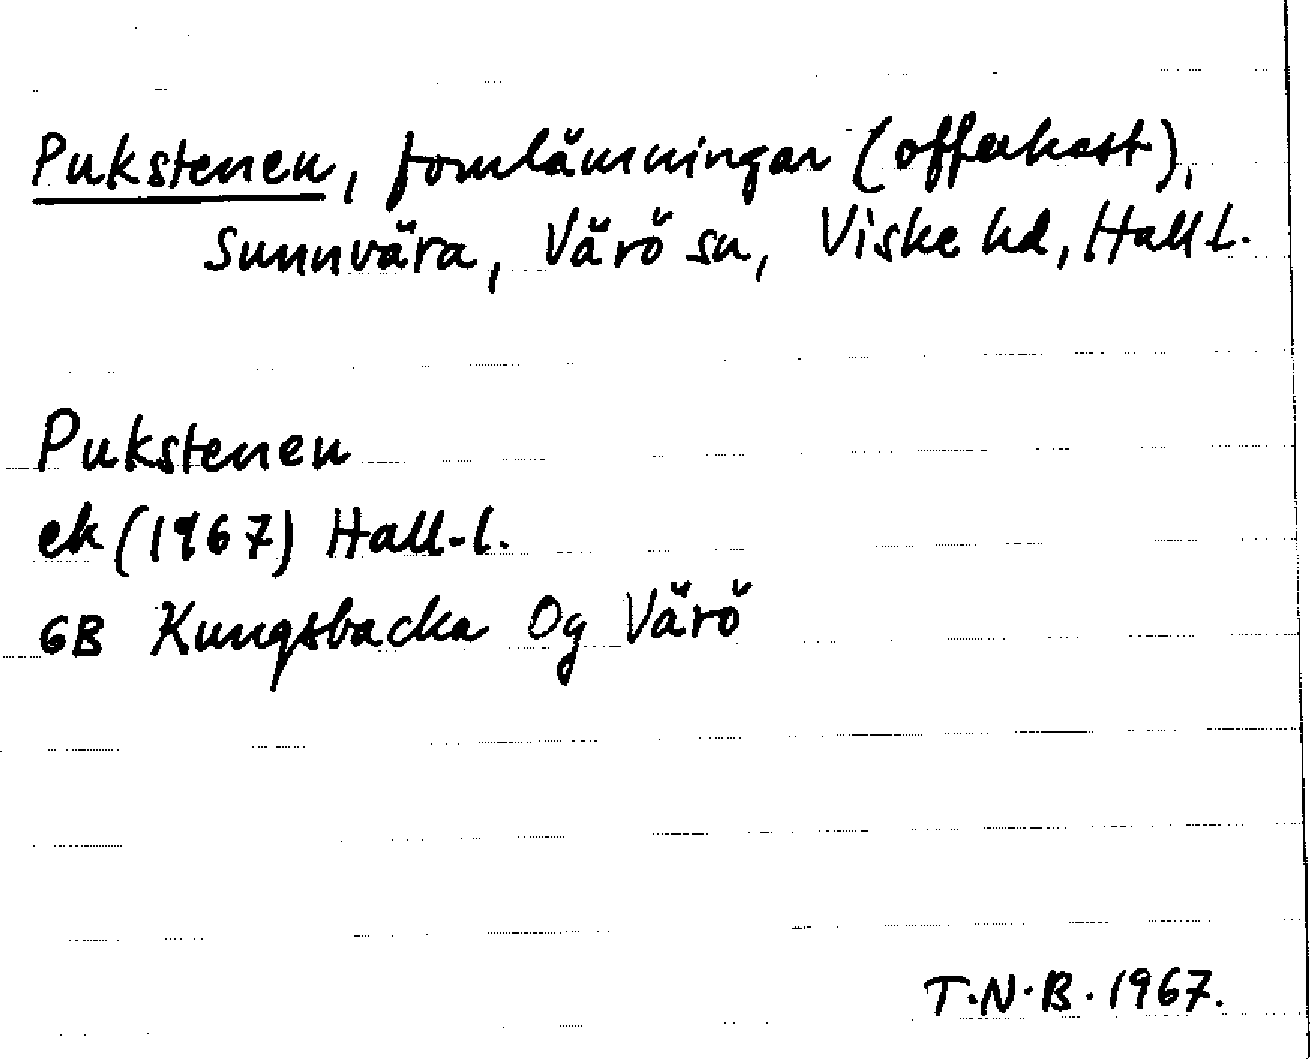 Pukstenen, fornlämningar (offerkast),
Sunnvära, Värö sn, Viske hd, Hall l.
Pukstenen
ek (1967) Hall-l.
6B Kungsbacka 0g Värö
T.N.B. 1967.